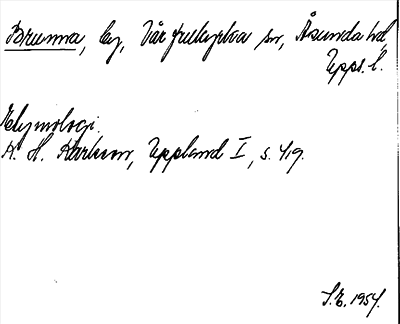 Brunna, by, Vårfrukyrka sn, Åsunda hd,
Upps. l.
Etymologi.
K. H. Karlsson, Uppland I, s. 419.
S.E. 1954.